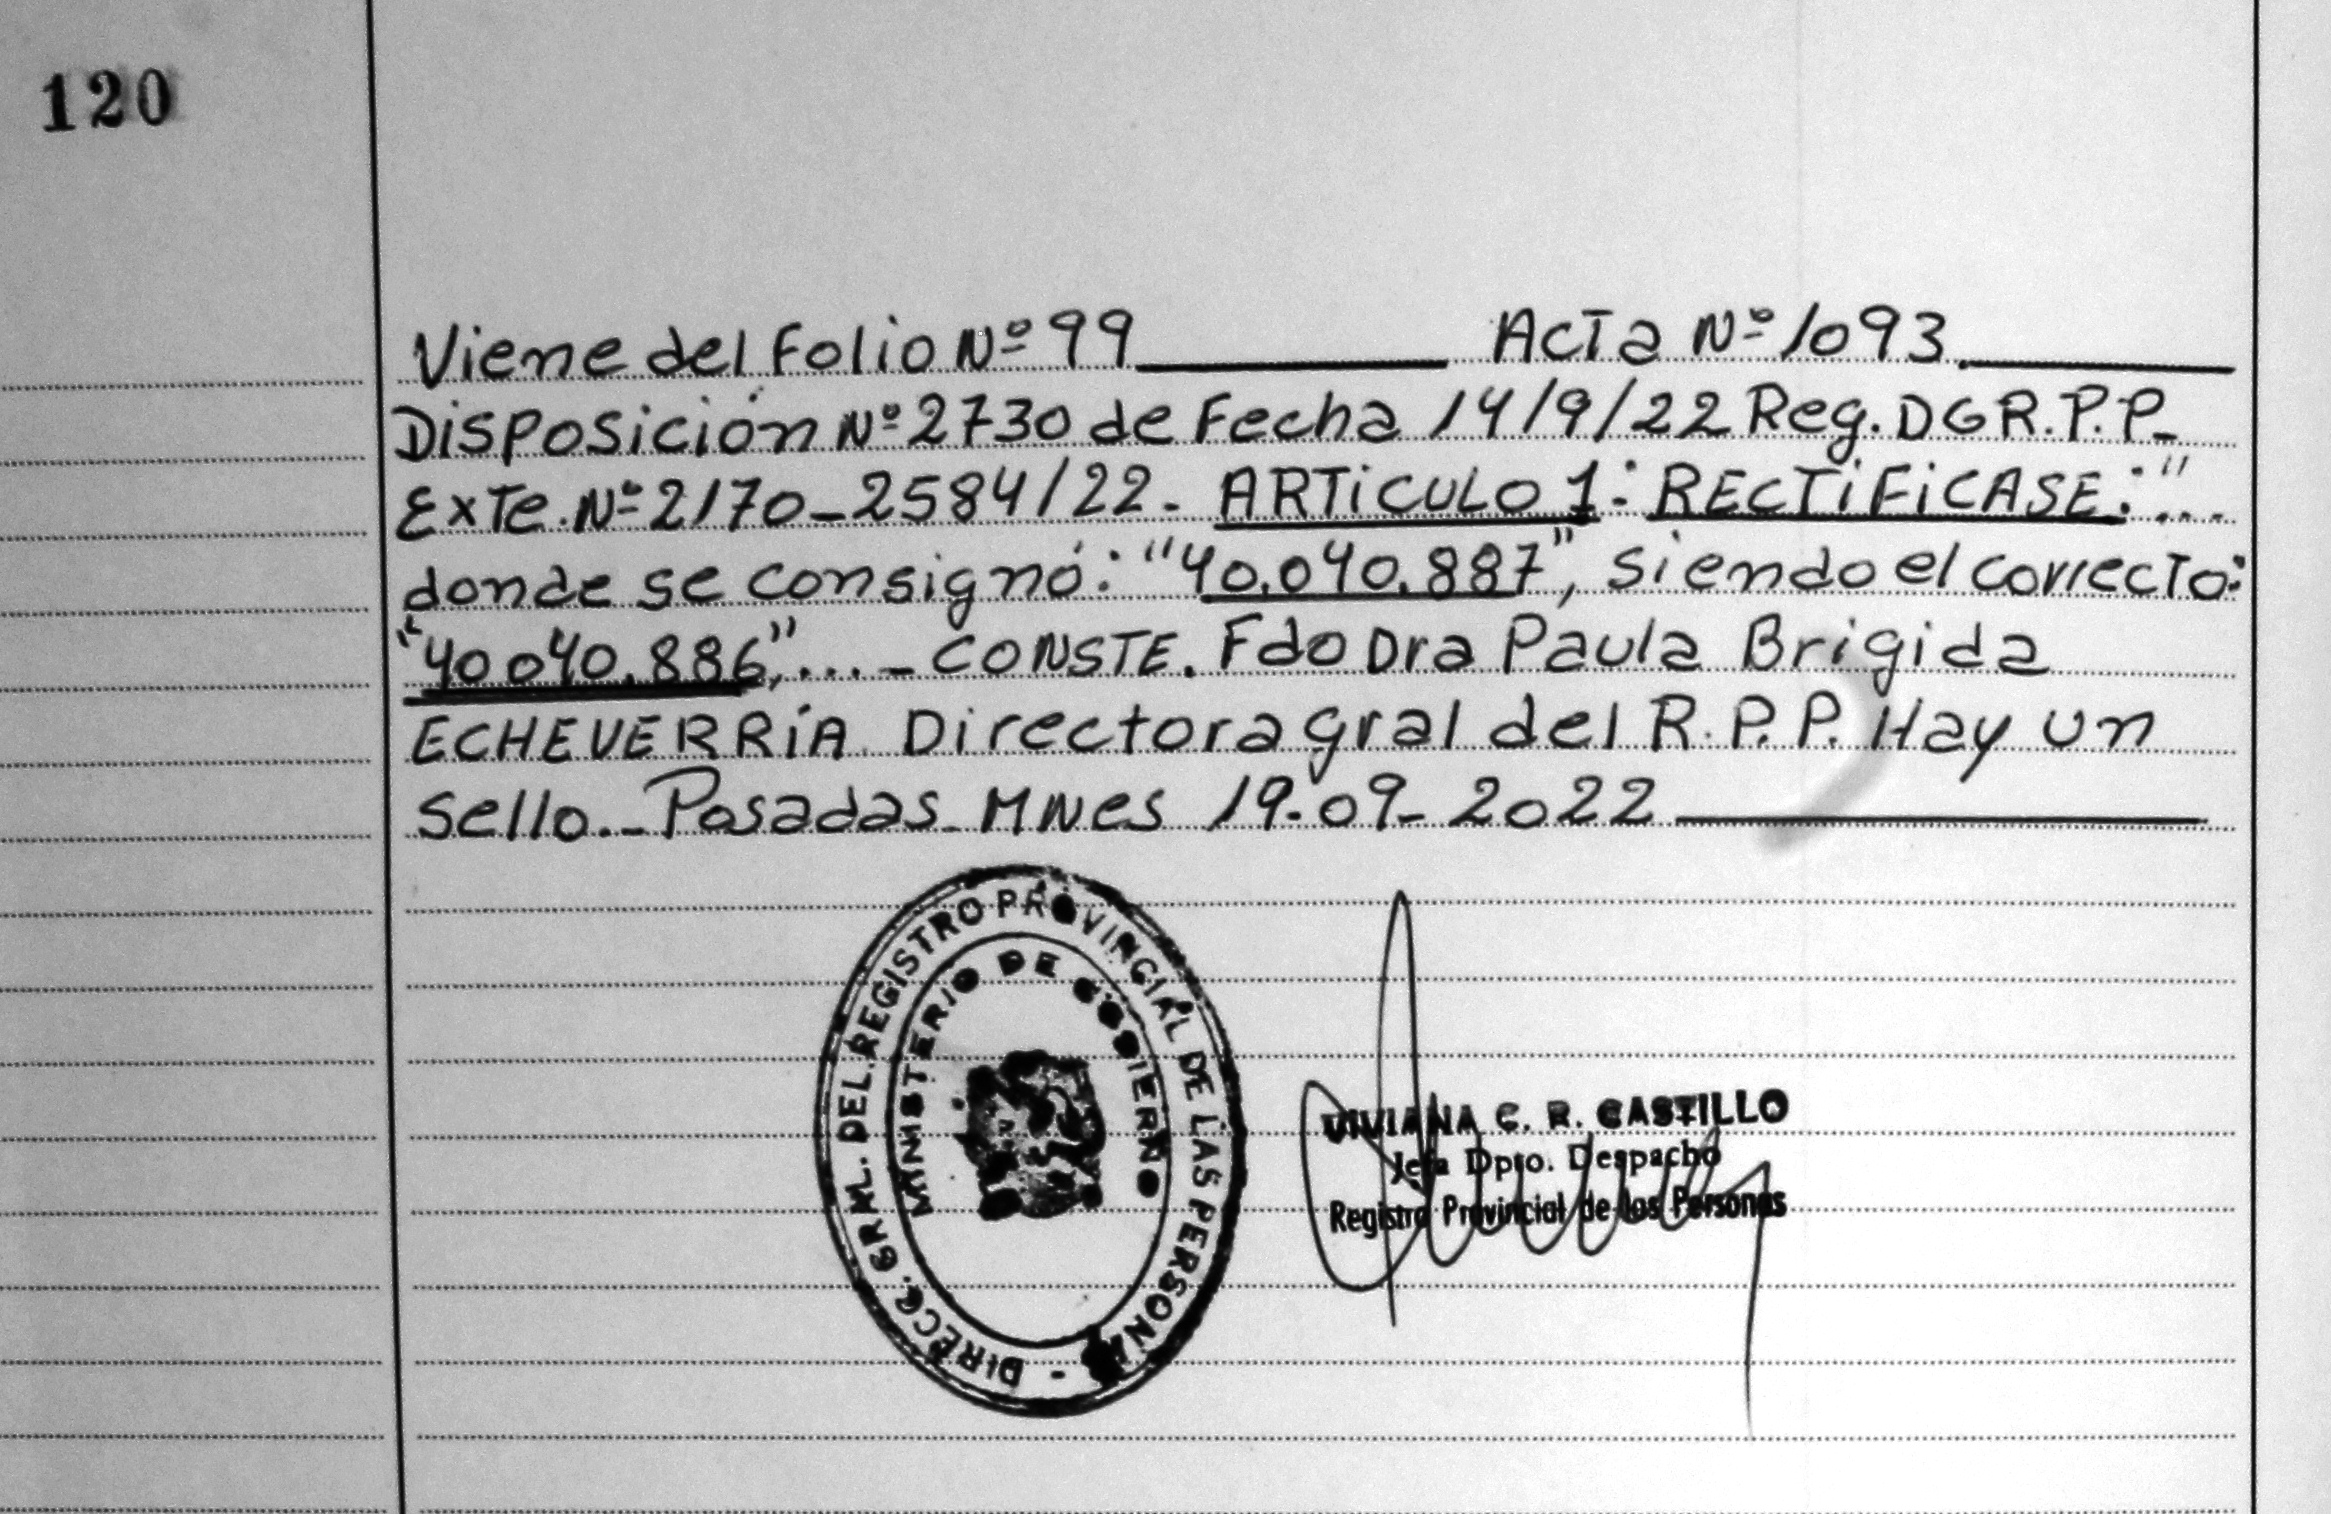 120
Viene del Folio Nº 99 Acta Nº 1093
Disposición Nº 2730 de Fecha 14/9/22 Reg. DGR.P.P.-
Exte. Nº 2170-2584/22.- ARTiCULO 1: RECTiFiCASE: "...
donde se consignó: "40.040.887", siendo el correcto:
"40040.886",...- CONSTE. Fdo Dra Paula Brigida
ECHEVERRíA Directora gral del R.P.P. Hay un
sello.- Posadas Mnes 19-09-2022
DIRECC. GRAL. DEL REGISTRO PROVINCIAL DE LAS PERSONAS -
MINISTERIO DE GOBIERNO
VIVIANA C. R. CASTILLO
Jefa Dpto. Despacho
Registro Provincial de las Personas